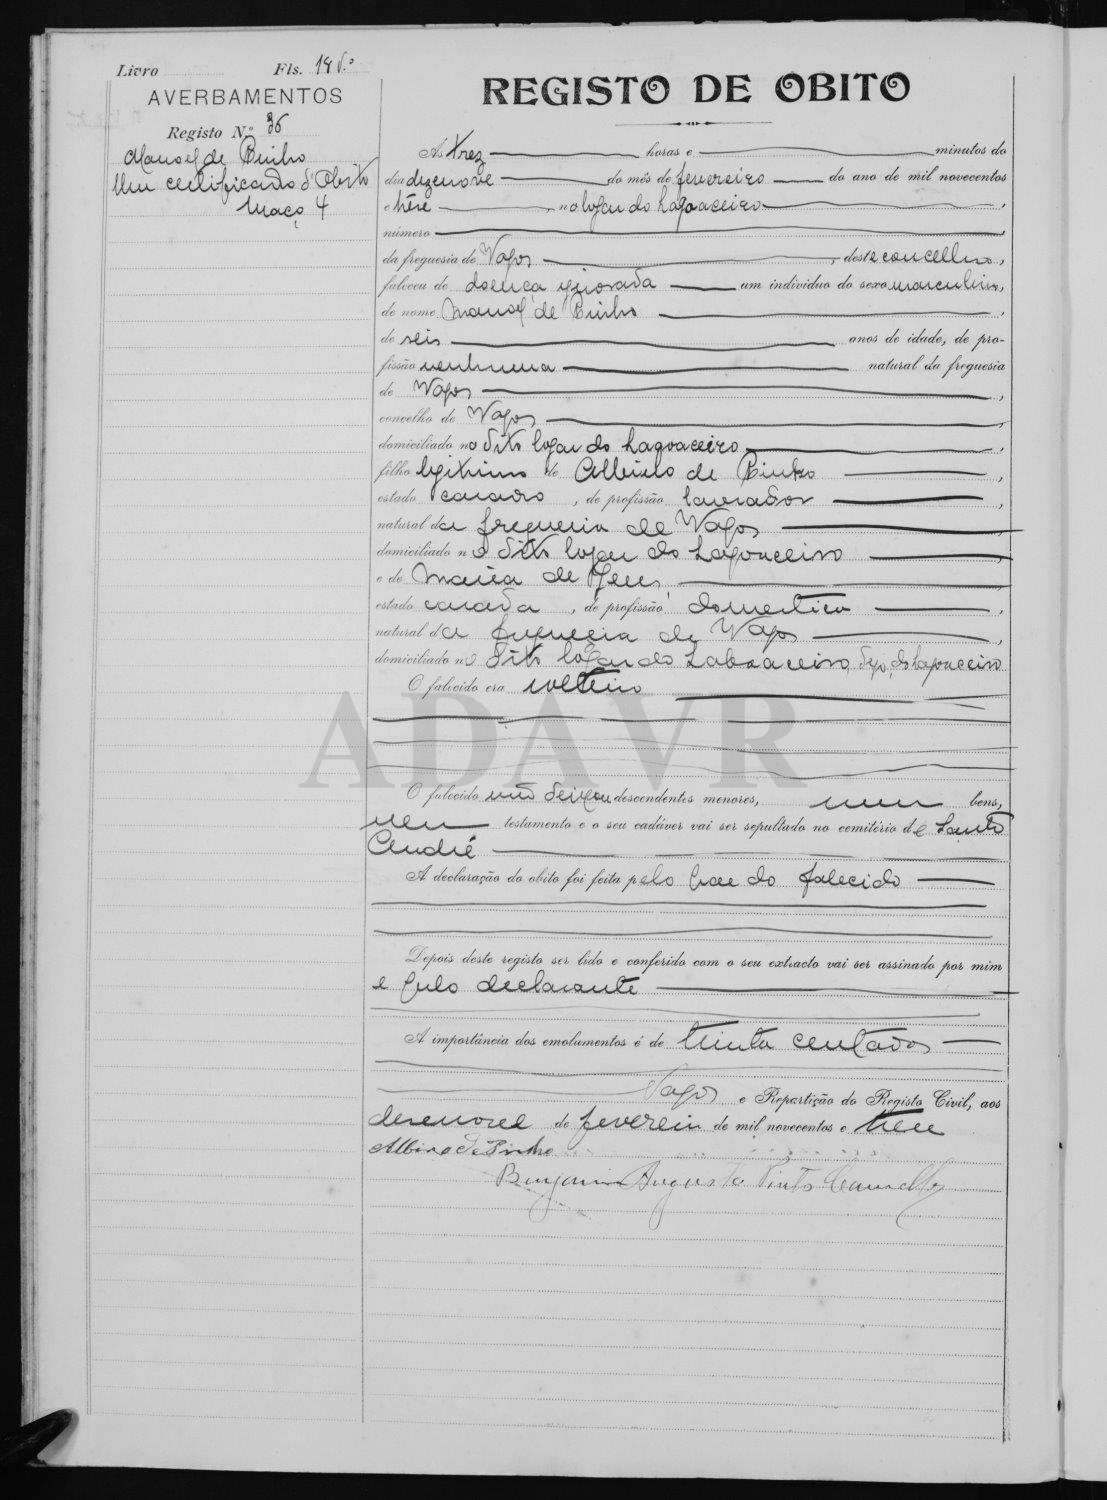 Livro Fls. 18 v.º
AVERBAMENTOS
Registo N.º 36
Manoel de Pinho
Um certificado d'Obito
Maço 4
REGISTO DE OBITO
As trez horas e minutos do
dia dezenove do mês de fevereiro do ano de mil novecentos
e trêse, no logar do Lagoaceiro,
número
da freguesia de Vagos, deste concelho,
faleceu de doença ignorada um indivíduo do sexo masculino,
de nome Manoel de Pinho,
de seis anos de idade, de pro-
fissão nenhuma natural da freguesia
de Vagos,
concelho de Vagos,
domiciliado no dito logar do Lagoaceiro,
filho legitimo de Albino de Pinho,
estado casado, de profissão lavrador,
natural da freguesia de Vagos,
domiciliado no dito logar do Lagoaceiro,
e de Maria de Jesus,
estado casada, de profissão domestica,
natural da freguezia de Vagos,
domiciliado no dito logar do Laboaceiro, digo, do Lagoaceiro
O falecido era solteiro
ADAVR
O falecido não deixou descendentes menores, nem bens,
nem testamento e o seu cadáver vai ser sepultado no cemitério de Santo
André
A declaração do obito foi feita pelo pae do falecido
Depois deste registo ser lido e conferido com o seu extracto vai ser assinado por mim
e pelo declarante
A importância dos emolumentos é de trinta centavos
Vagos e Repartição do Registo Civil, aos
desenove de fevereiro de mil novecentos e treze
Albino de Pinho
Benjamim Augusto Pinto